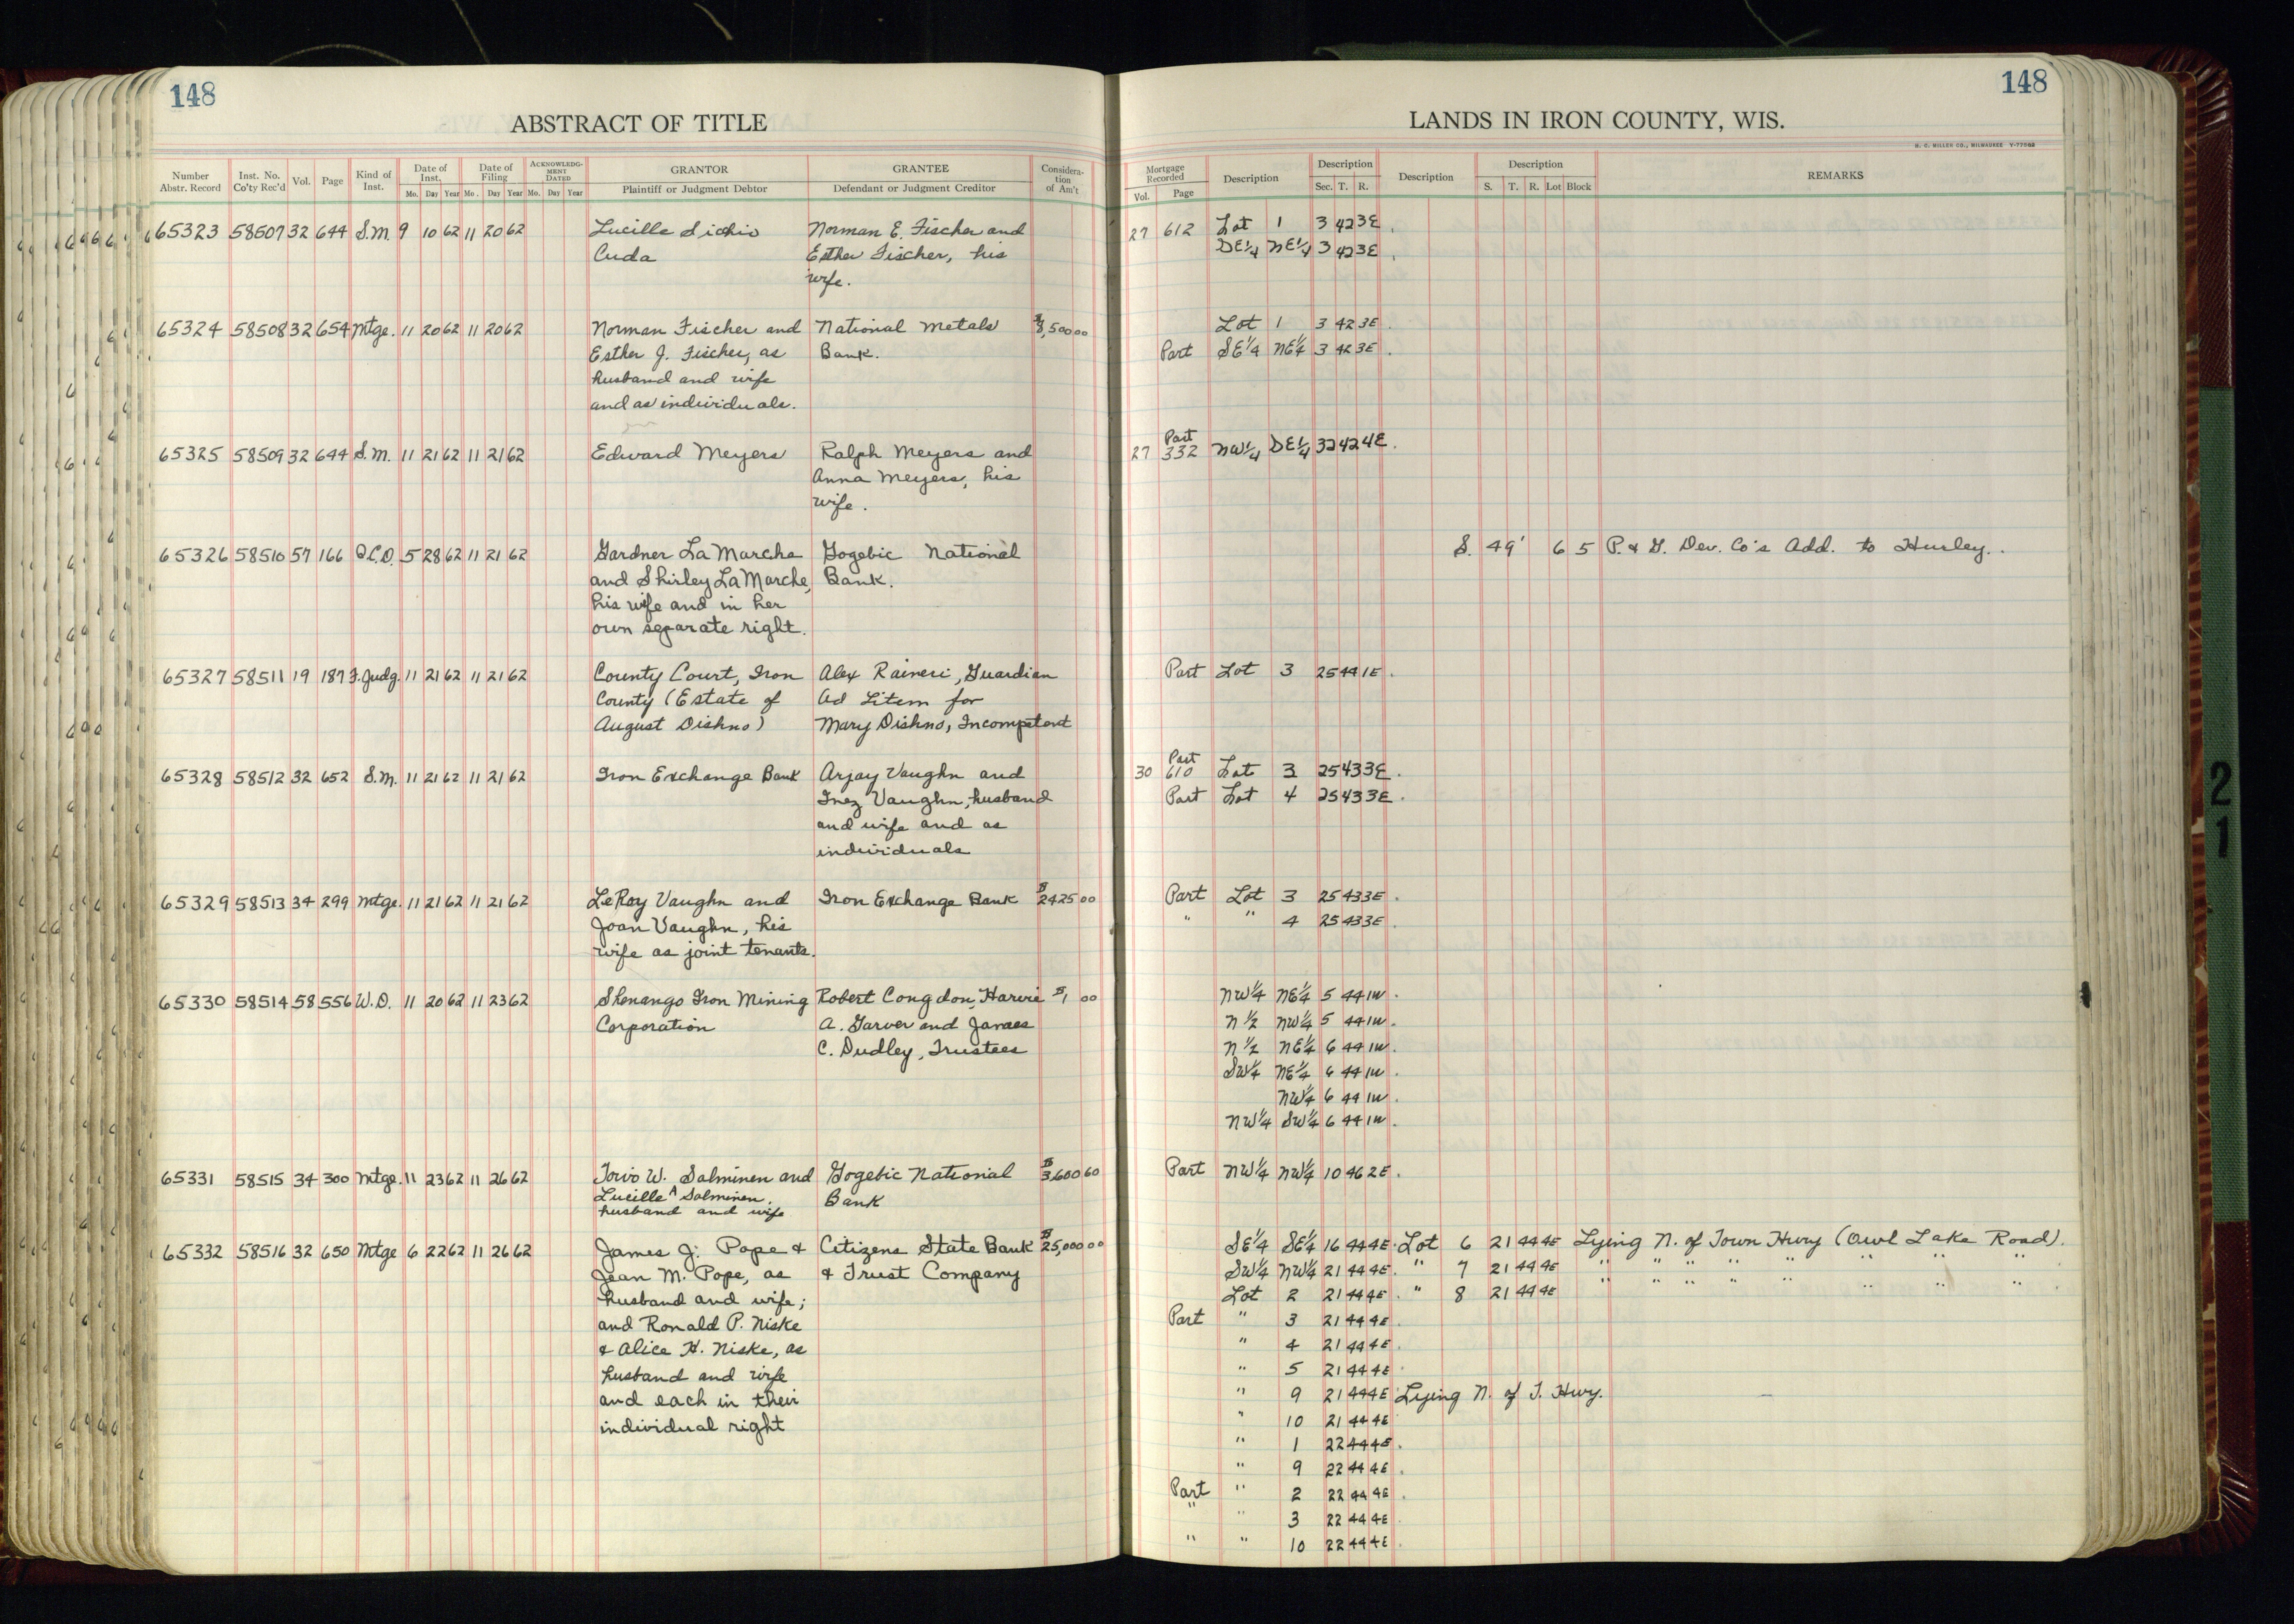 148
ABSTRACT OF TITLE
Number Abstr. Record | Inst. No. Co'ty Rec'd | Vol. | Page | Kind of Inst. | Date of Inst. Mo. Day Year | Date of Filing Mo. Day Year | ACKNOWLEDGMENT DATED Mo. Day Year | GRANTOR Plaintiff or Judgment Debtor | GRANTEE Defendant or Judgment Creditor | Consideration of Am't
65323 58507 32 644 S.M. 9 10 62 11 20 62 Lucille Norman E. Fischer and
Cuda Esther Fischer, his
wife.
65324 58508 32 654 Mtge. 11 20 62 11 20 62 Norman Fischer and National Metals $8,500 00
Esther J. Fischer, as Bank.
husband and wife
and as individuals.
65325 58509 32 644 S.M. 11 21 62 11 21 62 Edward Meyers Ralph Meyers and
Anna Meyers, his
wife.
65326 58510 57 166 Q.C.D. 5 28 62 11 21 62 Gardner La Marche Gogebic National
and Shirley La Marche, Bank.
his wife and in her
own separate right.
65327 58511 19 187 F. Judg. 11 21 62 11 21 62 County Court, Iron Alex Raineri, Guardian
County (Estate of Ad Litem for
August Dishno) Mary Dishno, Incompetent
65328 58512 32 652 S.M. 11 21 62 11 21 62 Iron Exchange Bank Arjay Vaughn and
Inez Vaughn, husband
and wife and as
individuals
65329 58513 34 299 Mtge. 11 21 62 11 21 62 LeRoy Vaughn and Iron Exchange Bank $2425 00
Joan Vaughn, his
wife as joint tenants.
65330 58514 58 556 W.D. 11 20 62 11 23 62 Shenango Iron Mining Robert Congdon, Harvie $1 00
Corporation A. Garver and James
C. Dudley, Trustees
65331 58515 34 300 Mtge. 11 23 62 11 26 62 Toivo W. Salminen and Gogebic National $3600 60
Lucille A Salminen, Bank
husband and wife
65332 58516 32 650 Mtge 6 22 62 11 26 62 James J. Pope & Citizens State Bank $25,000 00
Jean M. Pope, as & Trust Company
husband and wife;
and Ronald P. Niske
& Alice H. Niske, as
husband and wife
and each in their
individual right
148
LANDS IN IRON COUNTY, WIS.
H. C. MILLER CO., MILWAUKEE
Mortgage Recorded Vol. Page | Description | Description Sec. T. R. | Description | Description S. T. R. Lot Block | REMARKS
27 612 Lot 1 3 42 3E.
SE1/4 NE1/4 3 42 3E.
Lot 1 3 42 3E.
Part SE1/4 NE1/4 3 42 3E.
Part
27 332 NW1/4 SE1/4 32 42 4E.
S. 49' 6 5 P. & G. Dev. Co's Add. to Hurley.
Part Lot 3 25 44 1E.
Part
30 610 Lot 3 25 43 3E.
Part Lot 4 25 43 3E.
Part Lot 3 25 43 3E.
" " 4 25 43 3E.
NW1/4 NE1/4 5 44 1W.
N1/2 NW1/4 5 44 1W.
N1/2 NE1/4 6 44 1W.
SW1/4 NE1/4 6 44 1W.
NW1/4 6 44 1W.
NW1/4 SW1/4 6 44 1W.
Part NW1/4 NW1/4 10 46 2E.
SE1/4 SE1/4 16 44 4E. Lot 6 21 44 4E Lying N. of Town Hwy (Owl Lake Road).
SW1/4 NW1/4 21 44 4E. " 7 21 44 4E " " " " " " " "
Lot 2 21 44 4E. " 8 21 44 4E " " " " " " " "
Part " 3 21 44 4E.
" 4 21 44 4E.
" 5 21 44 4E.
" 9 21 44 4E Lying N. of T. Hwy.
" 10 21 44 4E
" 1 22 44 4E.
" 9 22 44 4E.
Part " 2 22 44 4E.
" " 3 22 44 4E.
" " 10 22 44 4E.
21